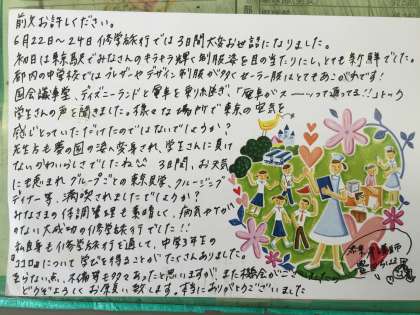 前文お許しください。
6月22日〜24日 修学旅行では3日間大変お世話になりました。
初日は東京駅でみなさんのキラキラ輝く制服姿を目の当たりにし、とても新鮮でした。
都内の中学校ではブレザーやデザイン制服が多くセーラー服はとてもあこがです!
国会議事堂、ディズニーランドと電車を乗り継ぎ、「電車がスーッって通ってる!!」と
学生さんの声を聞きました。様々な場所で東京の空気を
感じとっていただけたのではないでしょうか?
先生方も夢の国の姿へ変身され、学生さんに負け
ないかわいらしさでしたね 3日間、お天気
にも恵まれ、グループごとの東京見学、クルージング
ディナー等、満喫されましたでしょうか?
みなさまの体調管理も素晴しく、病気やケガの
ない大成功の修学旅行でした!!
私自身も修学旅行を通して、中学3年生の
"ココロ"について学びを得ることがたくさんありました。
至らない点、不備等も多々あったと思いますが、また機会がございましたら
どうぞよろしくお願い致します。本当にありがとうございました